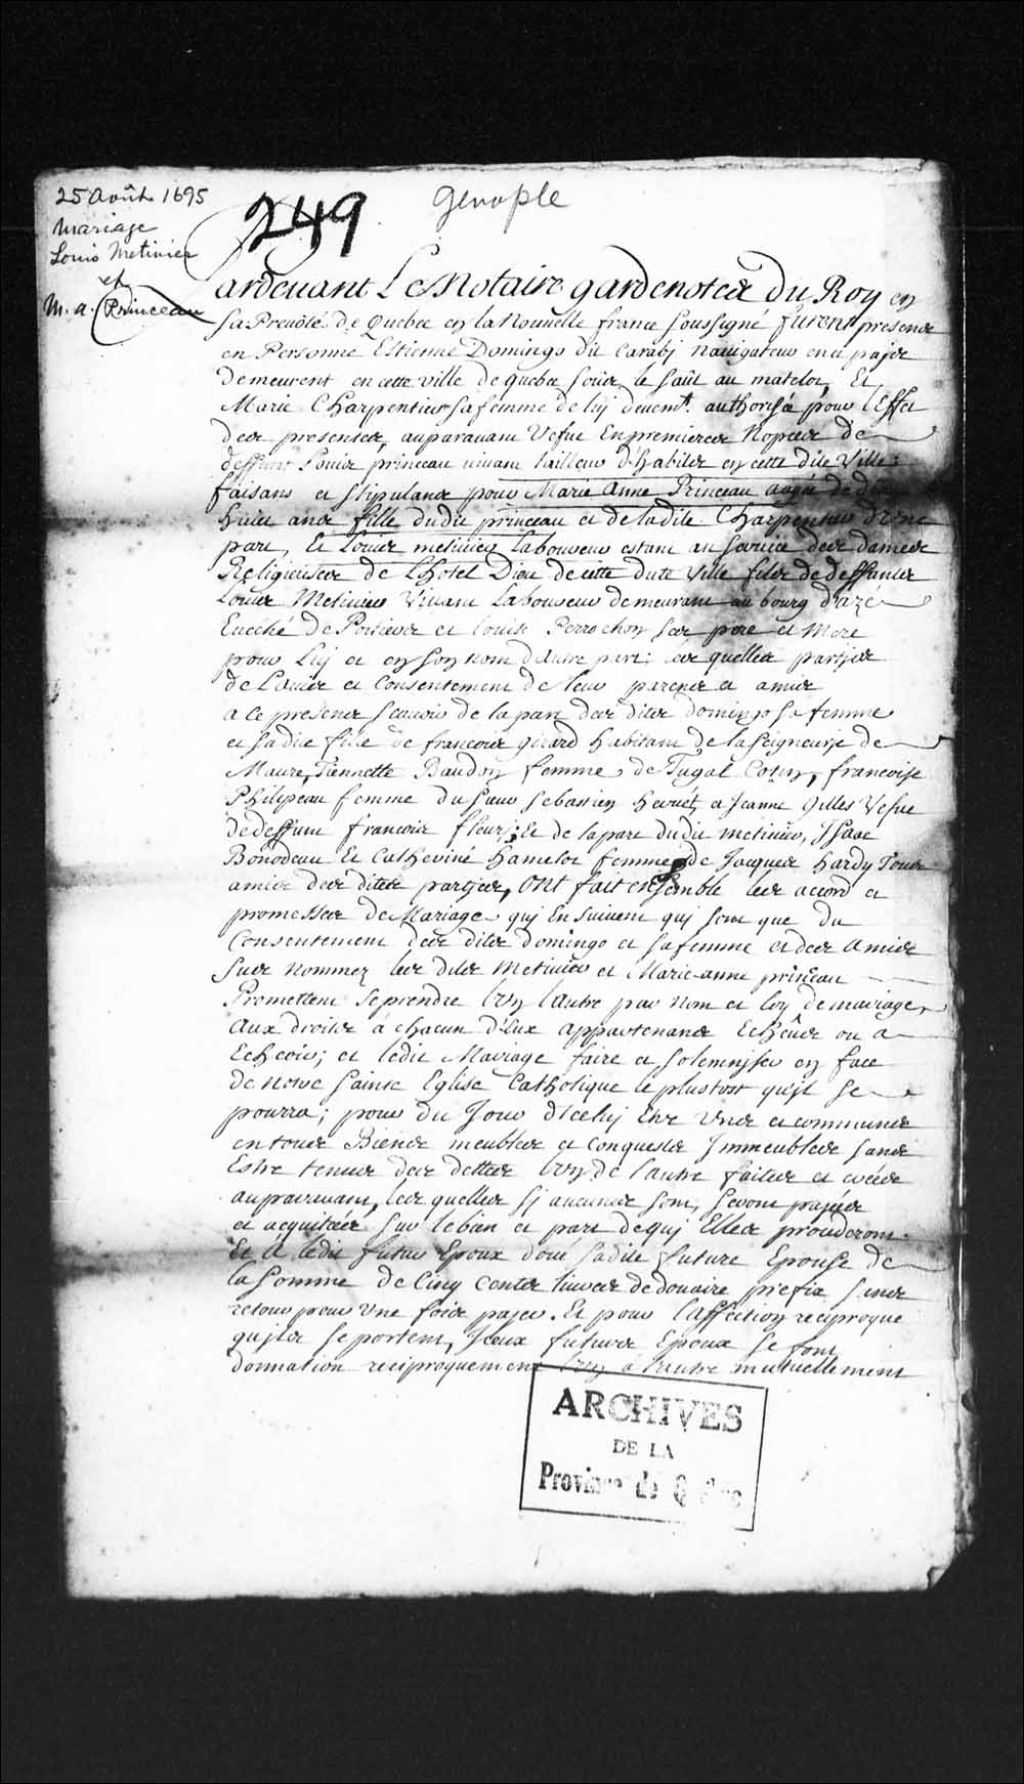 25 Août 1695
mariage
Louis Metivier
et
M. a. Princeau
249
genaple
Pardevant Le Notaire gardenottes du Roy en
sa Prevôté de Quebec en la Nouvelle france soussigné furent presens
en Personne Estienne Domingo dit Carabj navigateur en ce païs
demeurent en cette ville de quebec soûs le sault au matelot, Et
Marie Charpentier sa femme de luj deuemt. authorisée pour l'Effet
des presentes, auparavant Vefue En premieres Nopces de
deffunt Louis princeau vivant tailleur d'habits en cette dite Ville;
faisans et stipulans pour Marie Anne Princeau aagée de
huict ans fille dudit princeau et de ladite Charpentier d'une
part, Et Louis metivier Laboureur estant au service des dames
Religieuses de L'hotel Dieu de cette dite Ville fils de deffunts
Louis Metivier Vivant Laboureur demeurant au bourg d'azé
Eveché de Poitiers et Louise Perrochon ses pere et Mere
pour Luj et en son nom d'autre part; Les quelles partjes
de L'avis et Consentement de leurs parens et amis
a ce presens scavoir de la part des dits domingo sa femme
et sadite fille de francois girard habitant de la seigneurje de
Maure, Tiennette Baudon femme de Tugal Cotin, francoise
Philipeau femme du sieur sebastien hervét, et Jeanne gilles Vefue
de deffunt francois fleurj; Et de la part dudit metivier, Isaac
Bonodeau Et Catherine hamelot femme de Jacques hardy Tous
amis des dites partjes, ont fait ensemble les accord et
promesses de Mariage quj Ensuivent quj sont que du
Consentement des dits domingo et sa femme et des amis
sus nommez les dits Metivier et Marie-anne princeau
Promettent se prendre l'un l'autre par nom et loy de mariage,
Aux droits à chacun d'Eux appartenans Echeûs ou a
Echeoir; et ledit Mariage faire et solemnjser en face
de notre sainte Eglise Catholique le plustost qu'jl se
pourra; pour du Jour d'Iceluj Etre Unis et communs
en tous Biens meubles et Conquests Immeubles sans
Estre tenus des dettes l'un de l'autre faites et créées
auparavant, les quelles sj aucunes sont, seront payées
et acquitées sur le bien et part de quj Elles procederont.
Et a ledit futur Epoux doué sadite future Epouse de
la somme de Cinq Cents livres de douaire prefix sans
retour pour Une fois payer. Et pour l'affection reciproque
qu'jls se portent, Iceux futurs Epoux se font
donnation reciproquement l'un a l'autre mutuellement
ARCHIVES
DE LA
Province de Québec